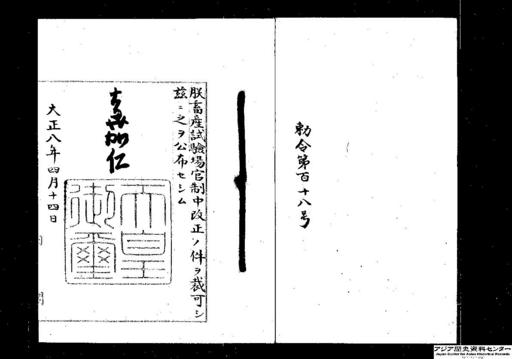 勅令第百十八号
朕畜産試驗場官制中改正ノ件ヲ裁可シ
茲ニ之ヲ公布セシム
嘉仁
天皇御璽
大正八年四月十四日
アジア歴史資料センター
Japan Center for Asian Historical Records